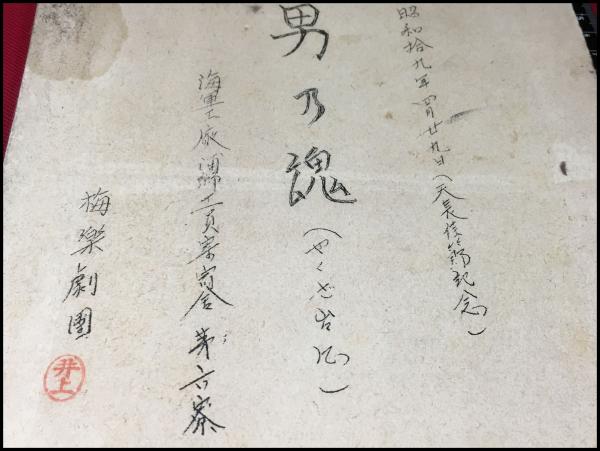 昭和拾九年四月廿九日(天長佳節記念)
男乃魂
(やくざ )
海軍工廠 工員寄宿舎 第六寮
梅樂劇團
井上